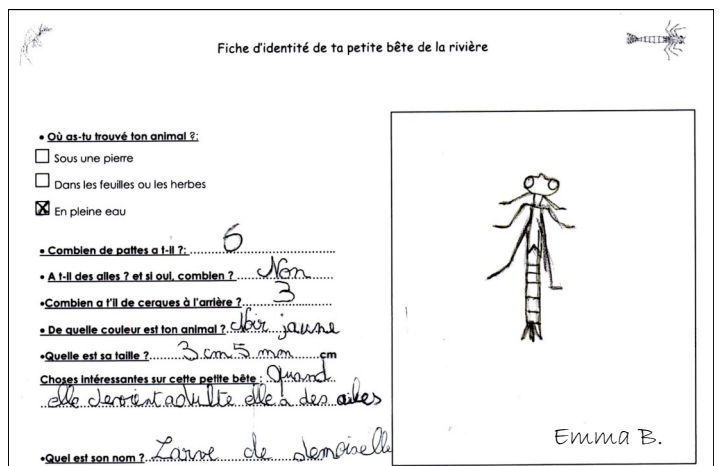 Fiche d'identité de ta petite bête de la rivière
• Où as-tu trouvé ton animal ?:
Sous une pierre
Dans les feuilles ou les herbes
En pleine eau
• Combien de pattes a t-il ?: 6
• A t-il des ailes ? et si oui, combien ? Non
•Combien a t'il de cerques à l'arrière ? 3
• De quelle couleur est ton animal ? Noir jaune
•Quelle est sa taille ? 3 cm 5 mm cm
Choses intéressantes sur cette petite bête : Quand
elle devient adulte elle a des ailes
•Quel est son nom ? Larve de demoiselle
Emma B.